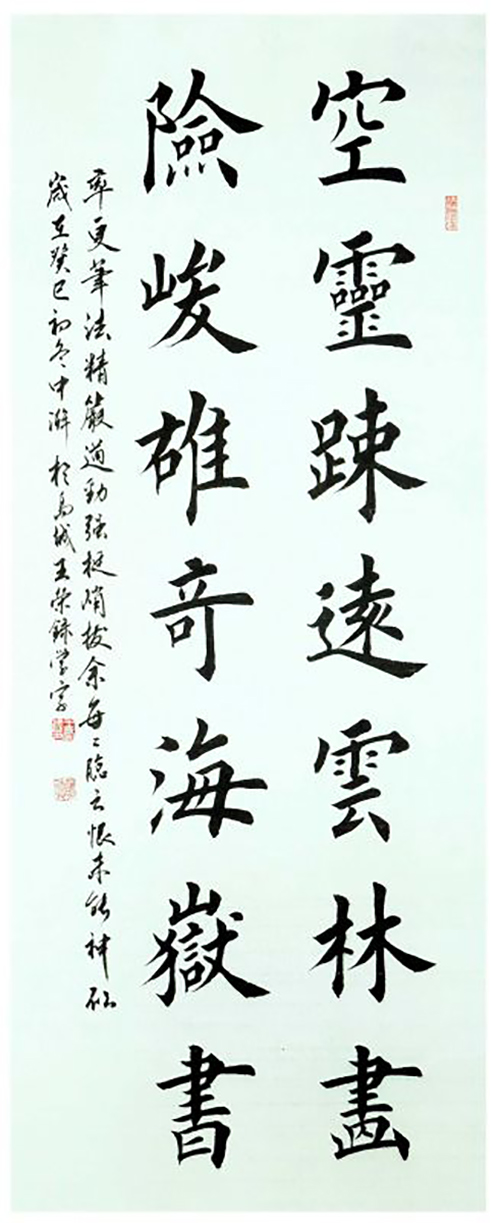 空靈踈遠雲林畫
險峻雄奇海嶽書
率更筆法精嚴遒勁强挺峭拔余每々臨之恨未能神形
歲在癸巳初冬中澣於島城王榮録學字